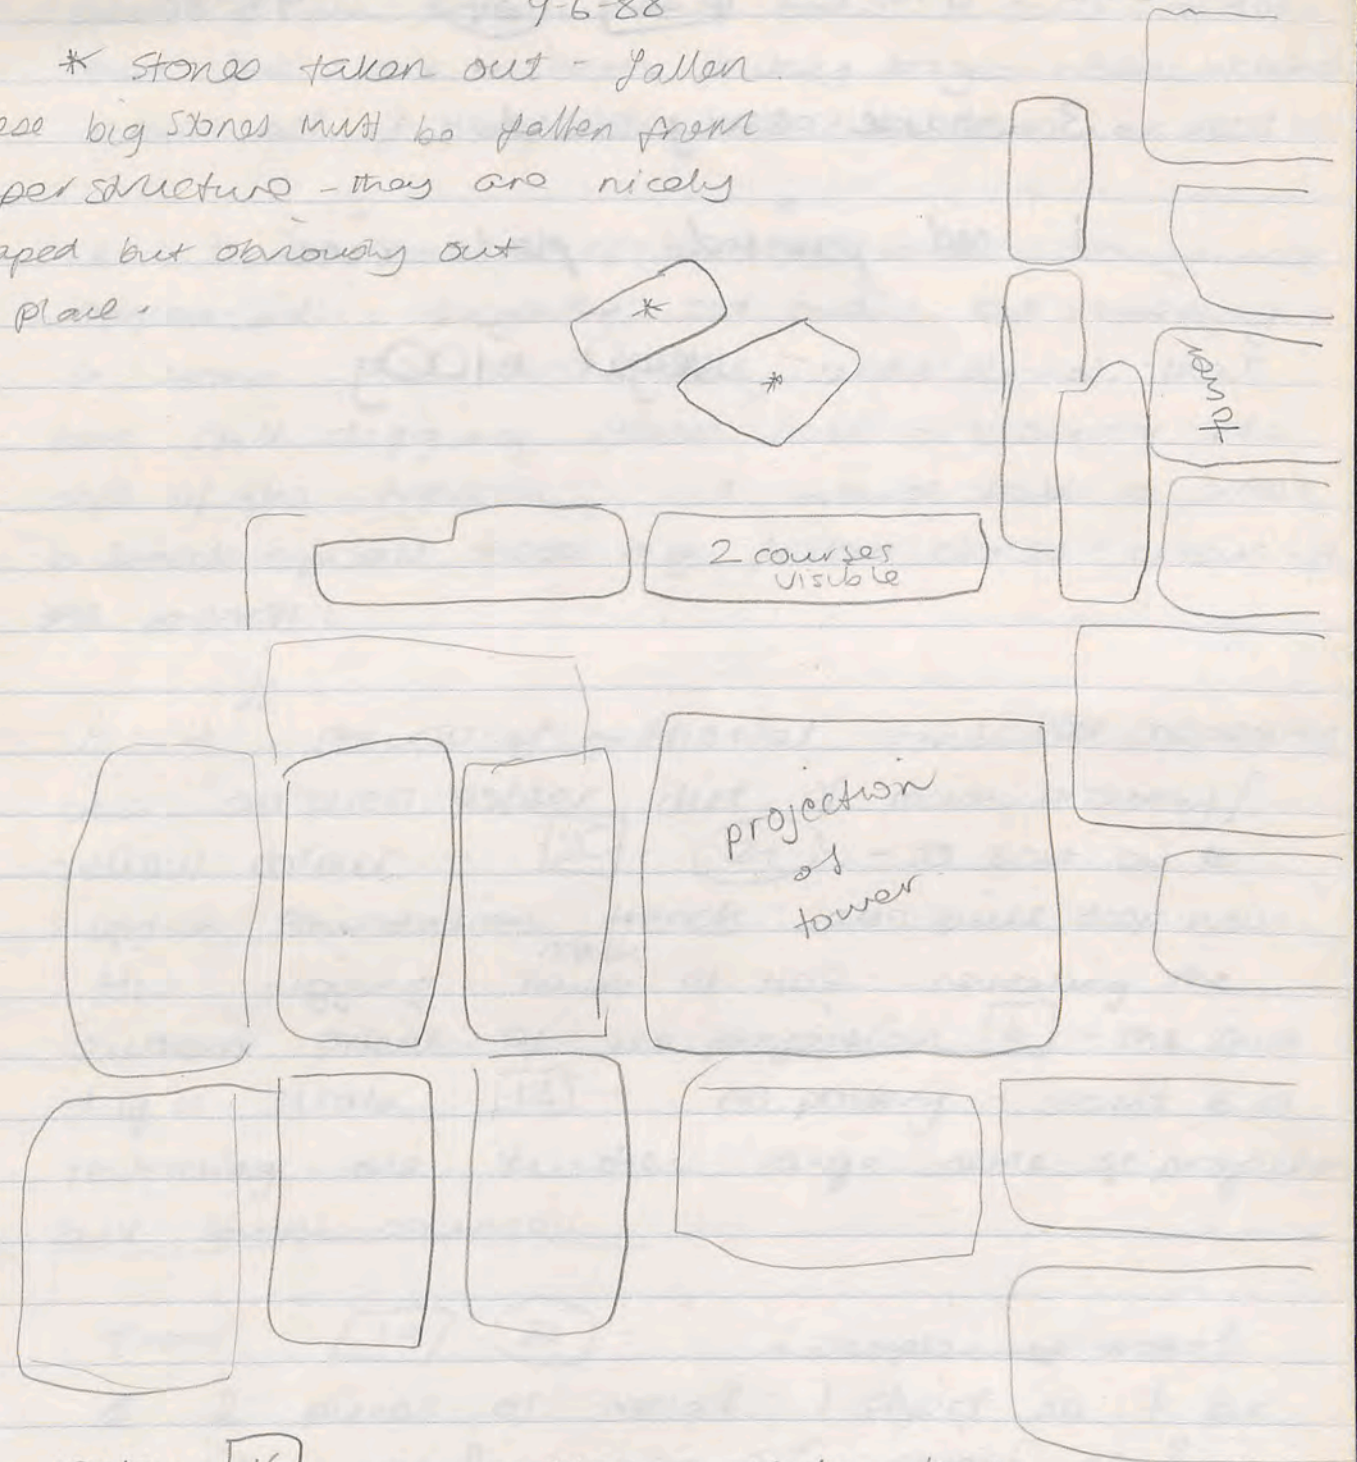 9-6-88
* stones taken out - fallen
ese big stones must be fallen from
per structure - they are nicely
aped but obviously out
place.
*
*
tower
2 courses
visible
projection
of
tower